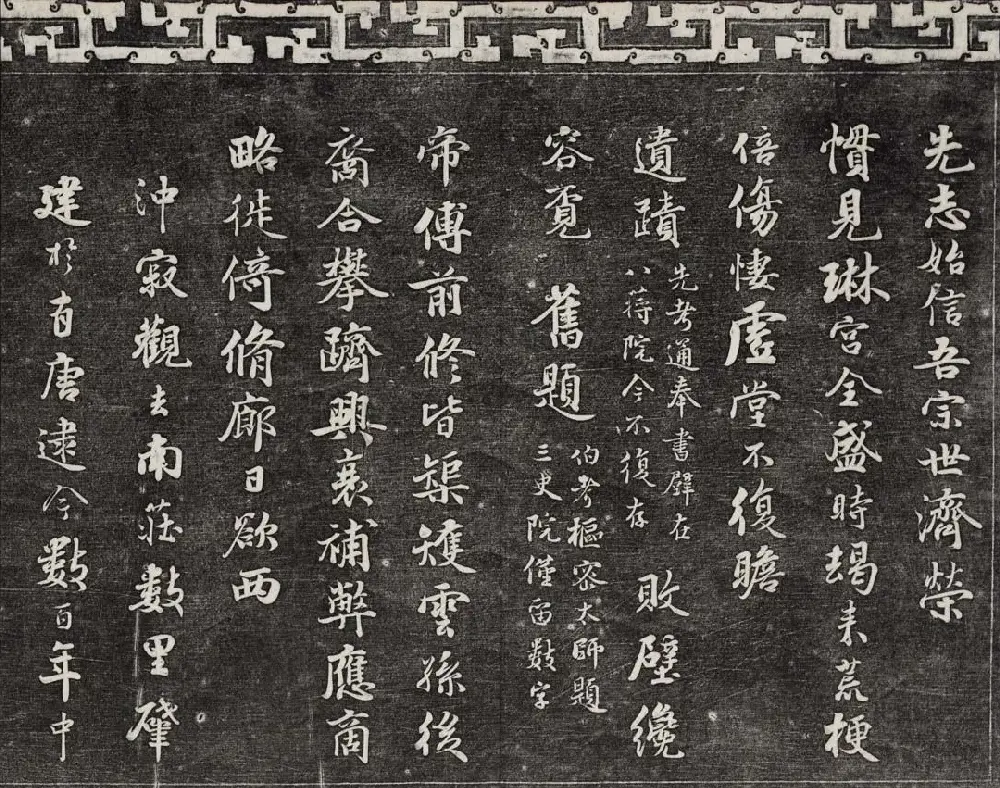 先志始信吾宗世濟榮
慣見琳宮全盛時朅来荒梗
倍傷悽虛堂不復瞻
遺蹟
先考通奉書壁在
八蒋院今不復存
敗壁纔
容覔舊題
伯考樞密太師題
三史院僅留數字
帝傅前修皆榘矱雲孫後
裔合攀躋興衰補弊應商
略徙倚脩廊日欲西
沖寂觀去南莊數里肇
建於有唐逮今數百年中